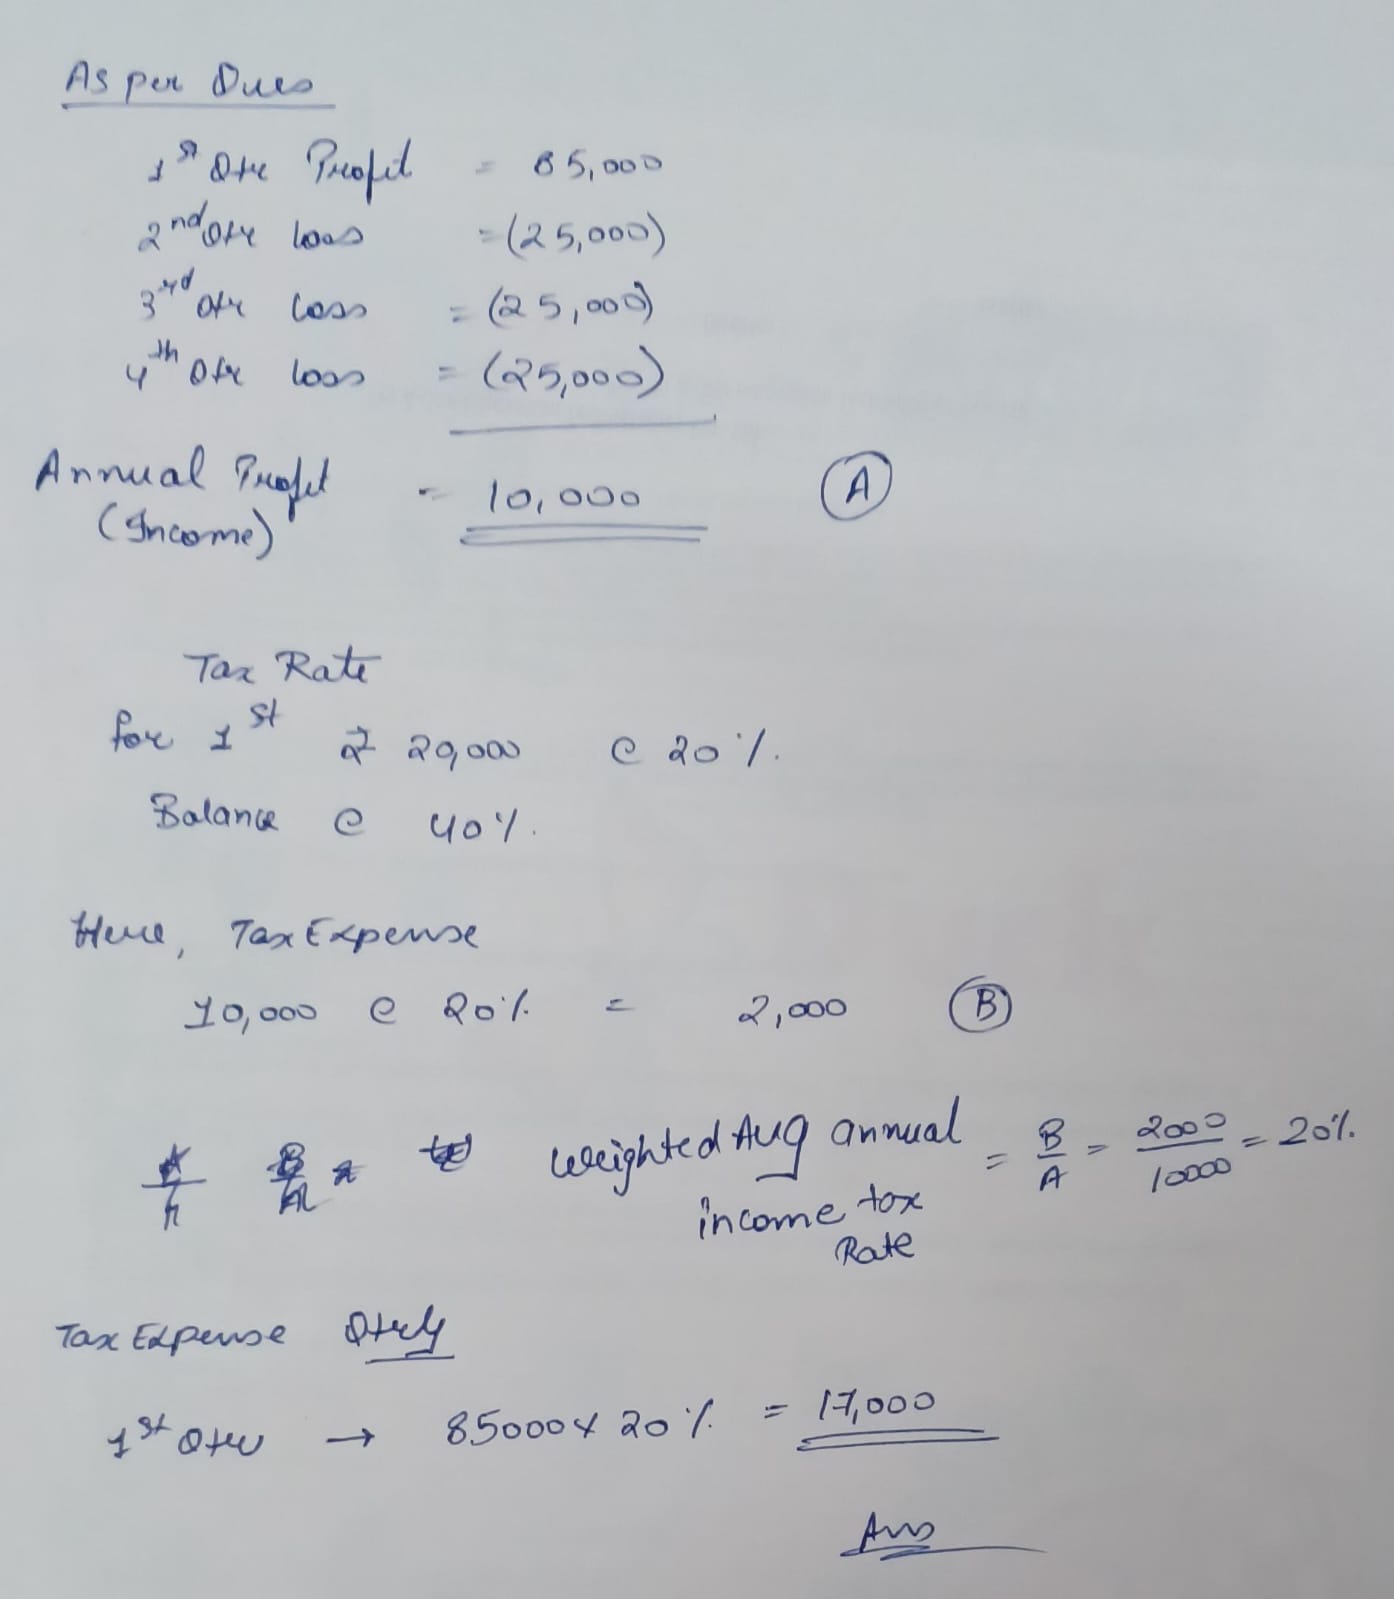 As per Ques
1st Qtr Profit = 85,000
2nd Qtr loss = (25,000)
3rd Qtr loss = (25,000)
4th Qtr loss = (25,000)
Annual Profit = 10,000 (A)
(Income)
Tax Rate
for 1st ₹ 20,000 @ 20%.
Balance @ 40%.
Here, Tax Expense
10,000 @ 20% = 2,000 (B)
Weighted Avg annual = B/A = 2000/10000 = 20%.
income tax
Rate
Tax Expense Qtrly
1st Qtr → 85000 x 20% = 17,000
Ans